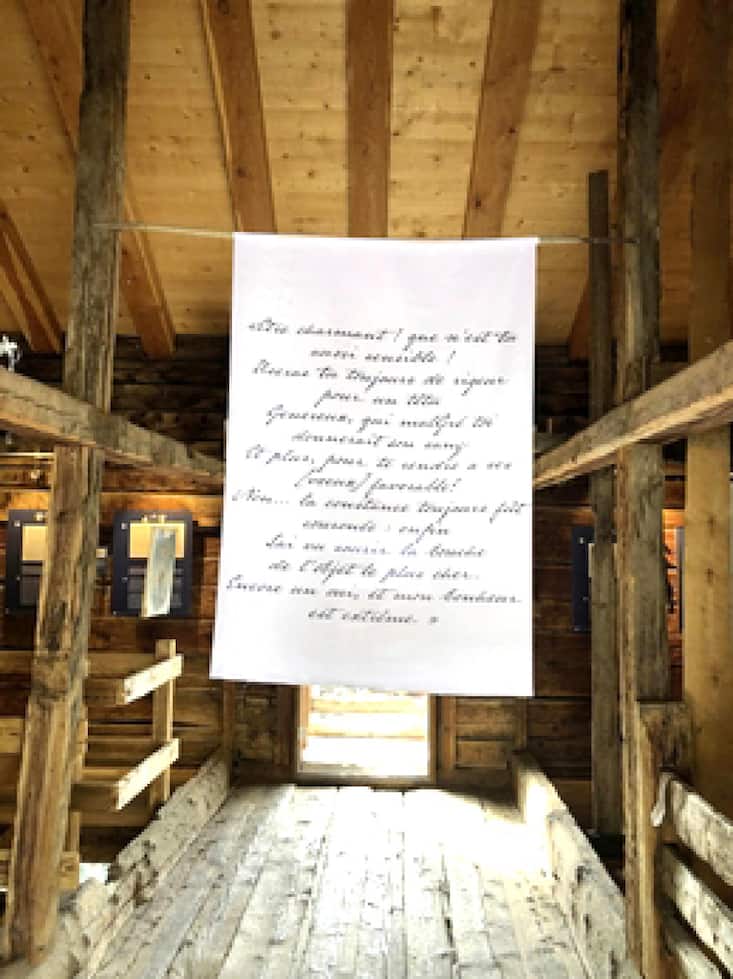 charmant ! que n'est tu
aussi sensible !
Seras tu toujours de rigeur
pour un
Genereux, qui malgré toi
donnerait son sang
Et plus, pour te rendre a ses
(voeux) favorable !
Non... la constance toujours fut
: enfin
J'ai vu ourir la bouche
de l'objet le plus cher.
Encore un , et mon bonheur
est extrême. »